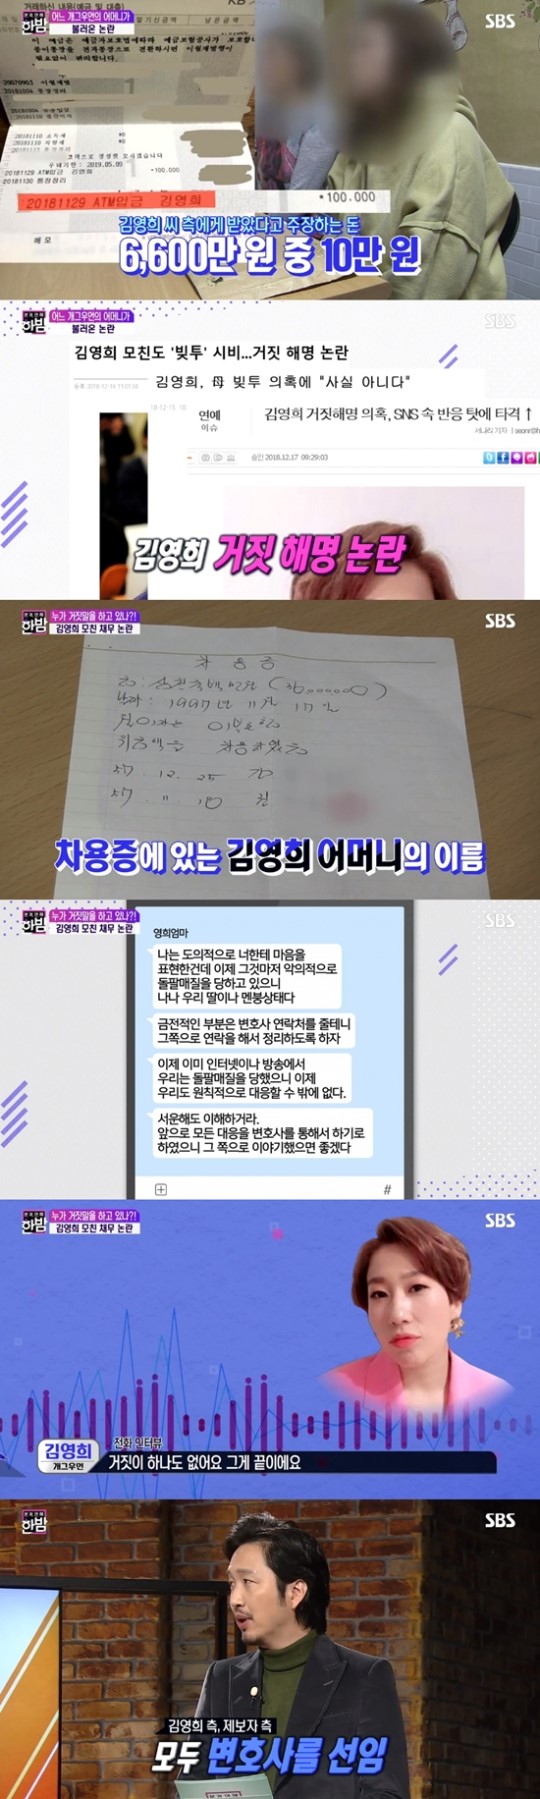 거래하신 내용(예금 및 대출)
한밤
어느 개그우먼의 어머니가
불러온 논란
SBS
20181129 ATM입금 김영희
*100,000
20181130 통장정리
20181129 ATM입금 김영희
*100,000
메모
김영희 씨 측에게 받았다고 주장하는 돈
6,600만 원 중 10만 원
한밤
어느 개그우먼의 어머니가
불러온 논란
SBS
김영희 모친도 '빚투' 시비...거짓 해명 논란
김영희, 母 빚투 의혹에 "사실 아니다"
연예
이슈
김영희 거짓해명 의혹, SNS 속 반응 탓에 타격 ↑
승인 2018.12.17 09:29:03
김영희 거짓 해명 논란
한밤
누가 거짓말을 하고 있나?!
김영희 모친 채무 논란
SBS
차용증
차용증에 있는 김영희 어머니의 이름
한밤
누가 거짓말을 하고 있나?!
김영희 모친 채무 논란
SBS
영희엄마
나는 도의적으로 너한테 마음을
표현한건데 이제 그것마저 악의적으로
돌팔매질을 당하고 있으니
나나 우리 딸이나 멘붕상태다
금전적인 부분은 변호사 연락처를 줄테니
그쪽으로 연락을 해서 정리하도록 하자
이제 이미 인터넷이나 방송에서
우리는 돌팔매질을 당했으니 이제
우리도 원칙적으로 대응할 수 밖에 없다.
서운해도 이해하거라.
앞으로 모든 대응을 변호사를 통해서 하기로
하였으니 그 쪽으로 이야기했으면 좋겠다
#
한밤
누가 거짓말을 하고 있나?!
김영희 모친 채무 논란
SBS
김영희
개그우먼
전화 인터뷰
거짓이 하나도 없어요 그게 끝이에요
한밤
SBS
김영희 측, 제보자 측
모두 변호사를 선임